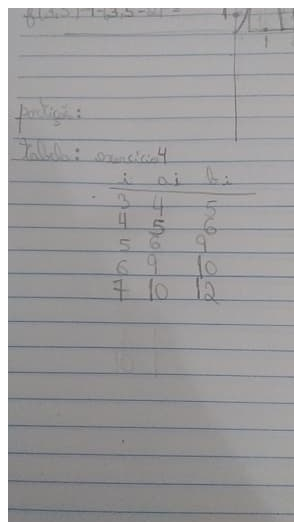 f(3,5)=1-(3,5-2)² =
partição:
Tabela: exercício 4
i ai bi
3 4 5
4 5 6
5 6 9
6 9 10
7 10 12